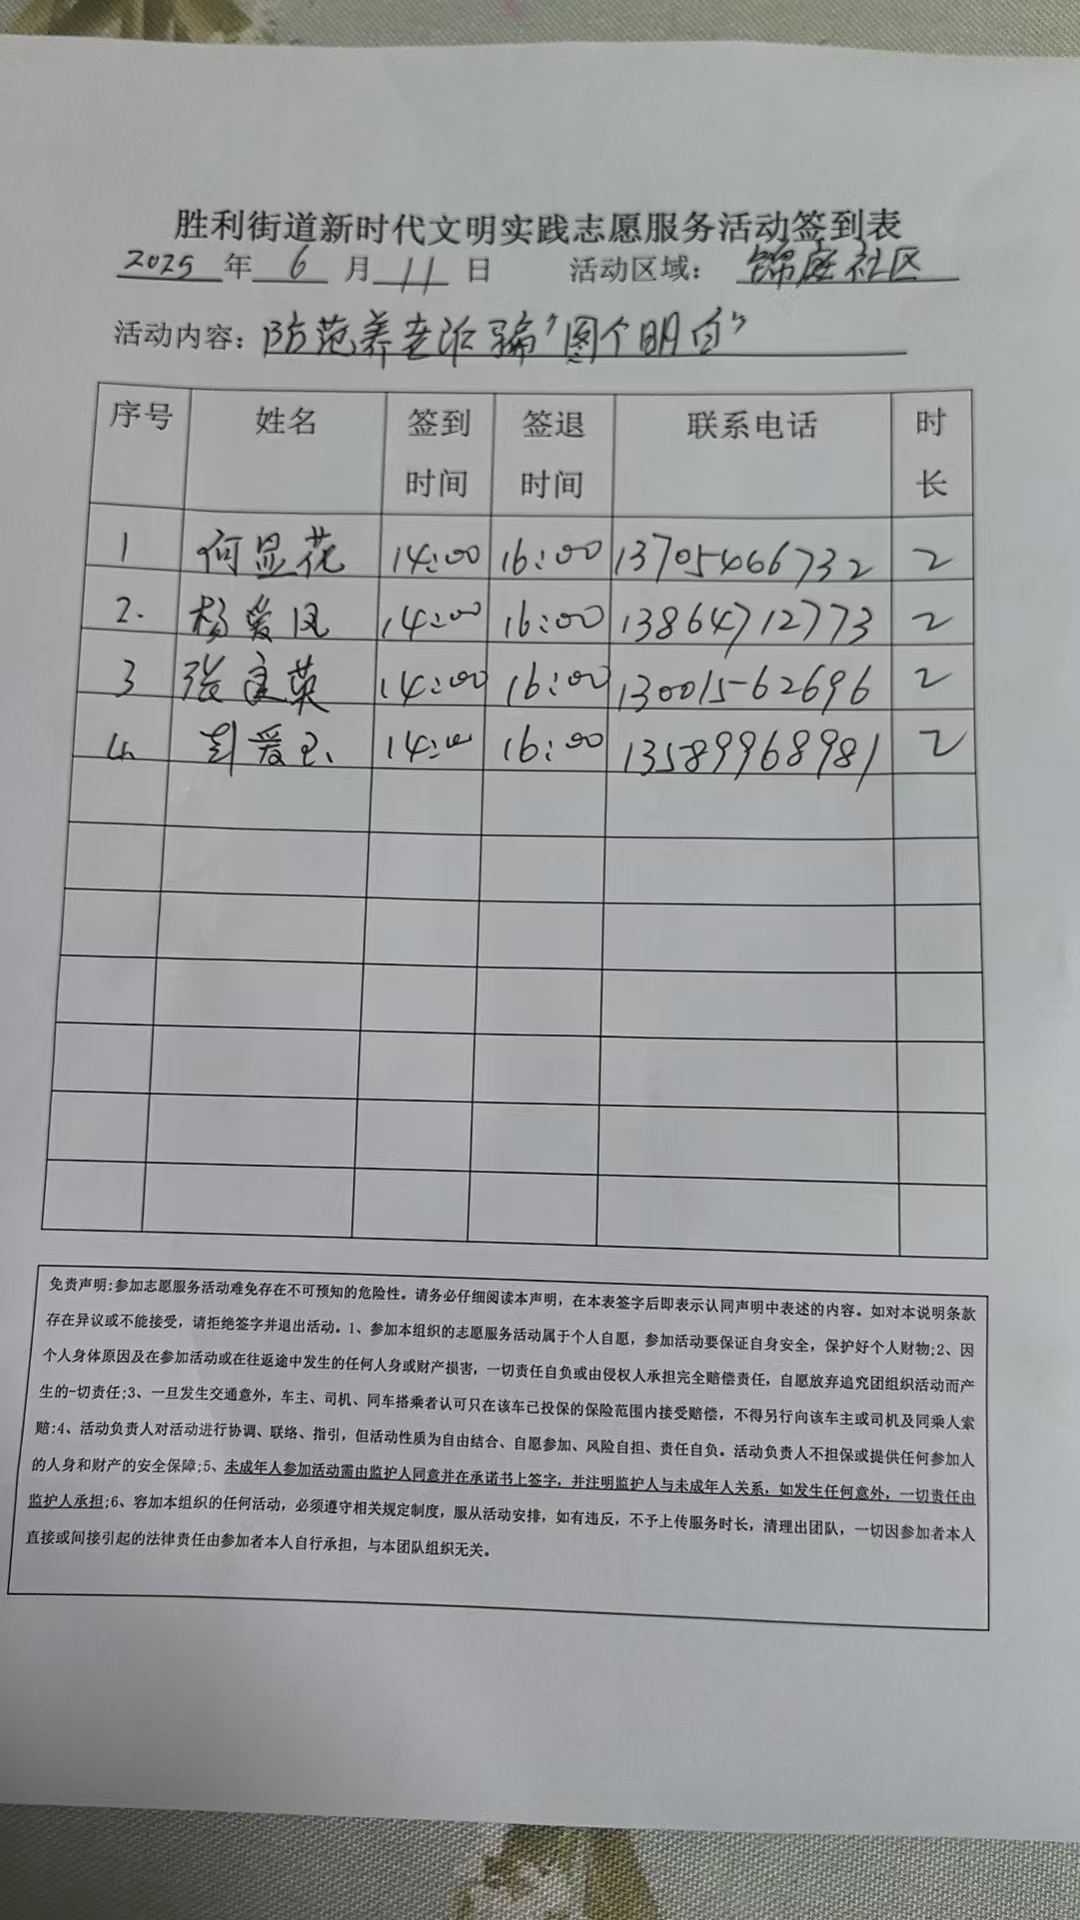 胜利街道新时代文明实践志愿服务活动签到表
2025年6月11日 活动区域：锦庭社区
活动内容：防范养老诈骗"图个明白"
序号 姓名 签到时间 签退时间 联系电话 时长
1 何显花 14:00 16:00 13705466732 2
2. 杨爱凤 14:00 16:00 13864712773 2
3 张英 14:00 16:00 13001562696 2
4. 彭爱玉 14:00 16:00 13589968981 2
免责声明:参加志愿服务活动难免存在不可预知的危险性。请务必仔细阅读本声明，在本表签字后即表示认同声明中表述的内容。如对本说明条款
存在异议或不能接受，请拒绝签字并退出活动。1、参加本组织的志愿服务活动属于个人自愿，参加活动要保证自身安全，保护好个人财物;2、因
个人身体原因及在参加活动或在往返途中发生的任何人身或财产损害，一切责任自负或由侵权人承担完全赔偿责任，自愿放弃追究团组织活动而产
生的-切责任;3、一旦发生交通意外，车主、司机、同车搭乘者认可只在该车已投保的保险范围内接受赔偿，不得另行向该车主或司机及同乘人索
赔:4、活动负责人对活动进行协调、联络、指引，但活动性质为自由结合、自愿参加、风险自担、责任自负。活动负责人不担保或提供任何参加人
的人身和财产的安全保障;5、未成年人参加活动需由监护人同意并在承诺书上签字，并注明监护人与未成年人关系，如发生任何意外，一切责任由
监护人承担;6、容加本组织的任何活动，必须遵守相关规定制度，服从活动安排，如有违反，不予上传服务时长，清理出团队，一切因参加者本人
直接或间接引起的法律责任由参加者本人自行承担，与本团队组织无关。